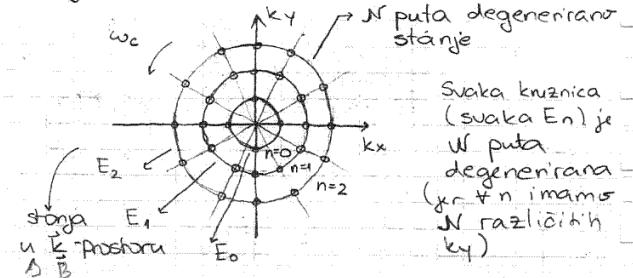 ky
N puta degenerirano
stanje
ωc
Svaka kružnica
(svaka En) je
N puta
degenerirana
(jer ∀ n imamo
N različitih
ky)
kx
n=0
n=1
n=2
E2
E1
E0
stanja
u k-prostoru
B